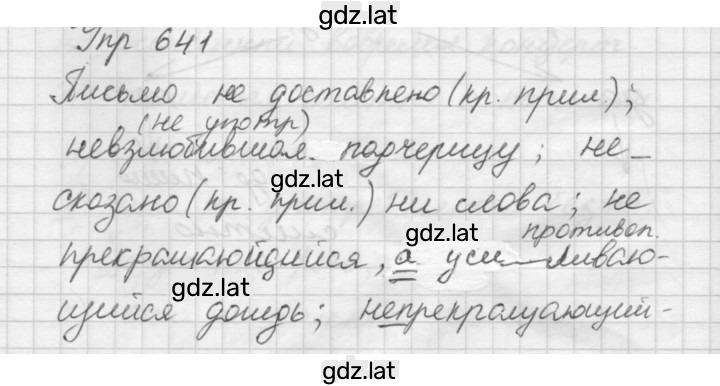 gdz.lat
Упр 641
Письмо не доставлено (кр. прил.);
(не употр)
невзлюбившая падчерицу; не-
gdz.lat
сказано (кр. прил.) ни слова; не
gdz.lat противоп.
прекращающийся, а уси ливаю-
gdz.lat
щийся дождь; непрекращающий-
gdz.lat